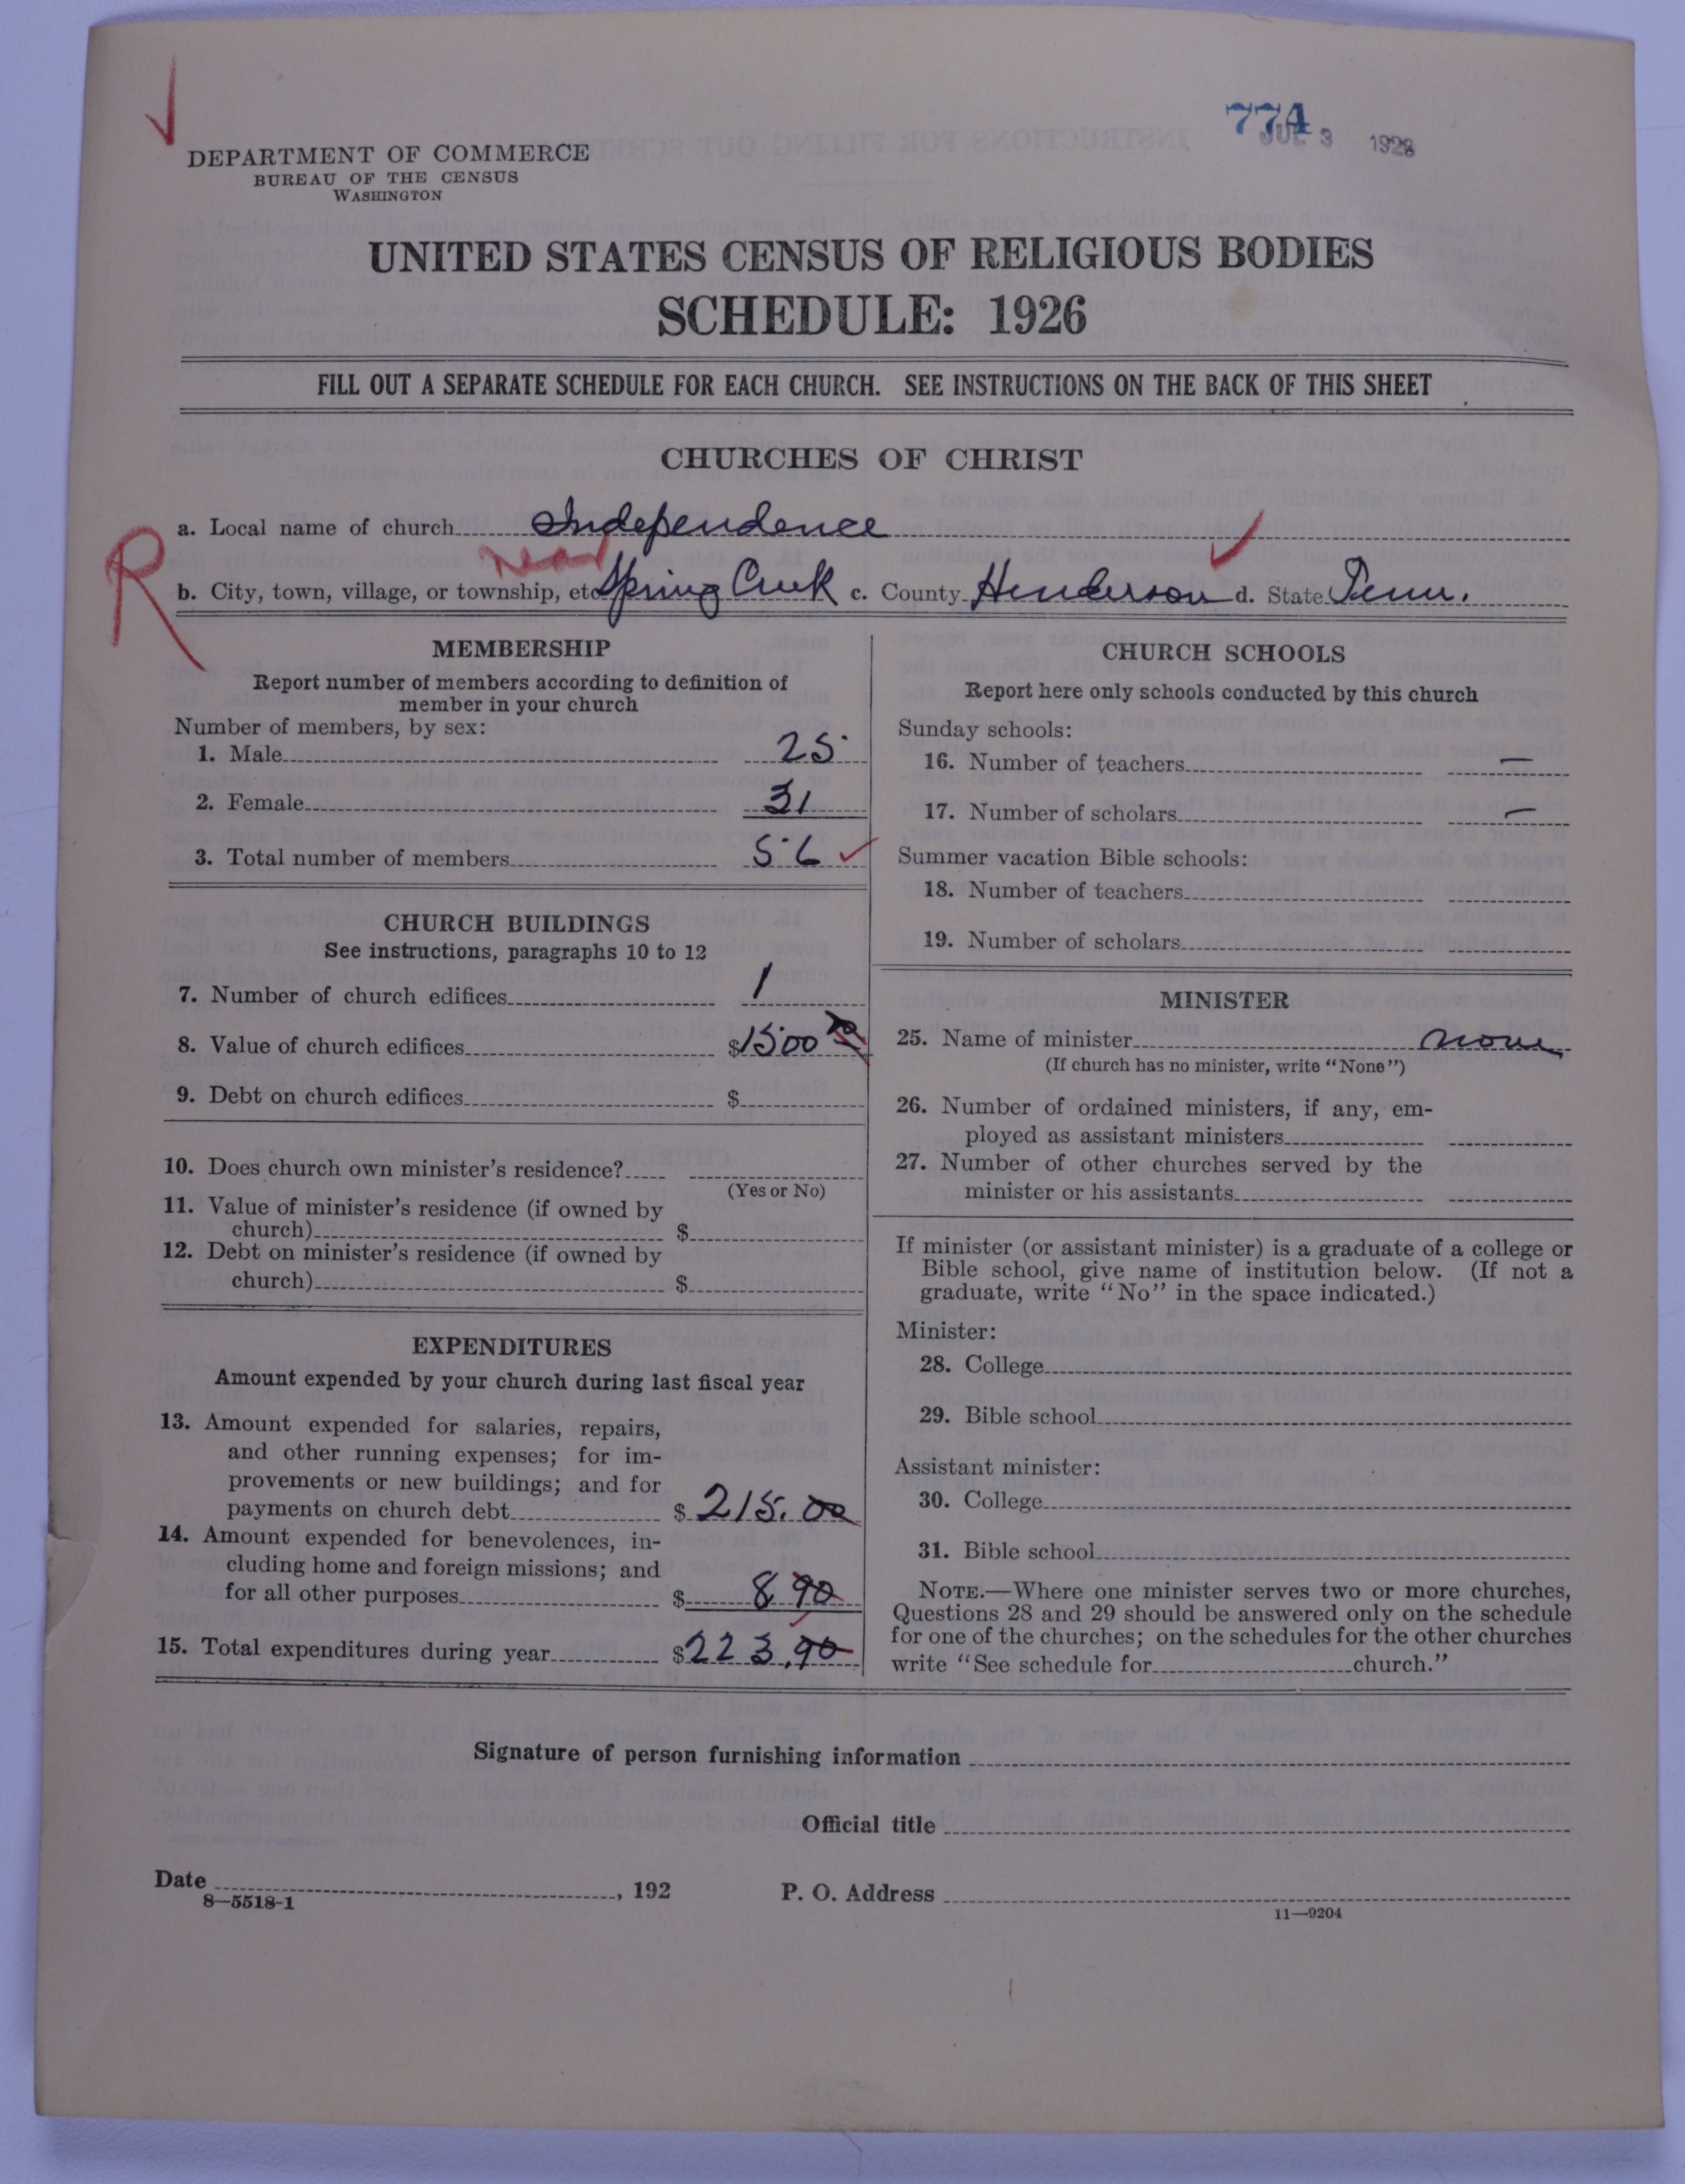 774
JUL 3 1928
DEPARTMENT OF COMMERCE
BUREAU OF THE CENSUS
WASHINGTON
UNITED STATES CENSUS OF RELIGIOUS BODIES
SCHEDULE: 1926
FILL OUT A SEPARATE SCHEDULE FOR EACH CHURCH. SEE INSTRUCTIONS ON THE BACK OF THIS SHEET
CHURCHES OF CHRIST
a. Local name of church Independence
R
near
b. City, town, village, or township, etc. Spring Creek c. County Henderson d. State Tenn.
MEMBERSHIP
Report number of members according to definition of
member in your church
Number of members, by sex:
1. Male 25
2. Female 31
3. Total number of members 56
CHURCH BUILDINGS
See instructions, paragraphs 10 to 12
7. Number of church edifices 1
8. Value of church edifices $1500 00
9. Debt on church edifices $
10. Does church own minister's residence?
(Yes or No)
11. Value of minister's residence (if owned by
church) $
12. Debt on minister's residence (if owned by
church) $
EXPENDITURES
Amount expended by your church during last fiscal year
13. Amount expended for salaries, repairs,
and other running expenses; for im-
provements or new buildings; and for
payments on church debt $215.00
14. Amount expended for benevolences, in-
cluding home and foreign missions; and
for all other purposes $8 90
15. Total expenditures during year $223.90
CHURCH SCHOOLS
Report here only schools conducted by this church
Sunday schools:
16. Number of teachers —
17. Number of scholars —
Summer vacation Bible schools:
18. Number of teachers
19. Number of scholars
MINISTER
25. Name of minister none
(If church has no minister, write "None")
26. Number of ordained ministers, if any, em-
ployed as assistant ministers
27. Number of other churches served by the
minister or his assistants
If minister (or assistant minister) is a graduate of a college or
Bible school, give name of institution below. (If not a
graduate, write "No" in the space indicated.)
Minister:
28. College
29. Bible school
Assistant minister:
30. College
31. Bible school
NOTE.—Where one minister serves two or more churches,
Questions 28 and 29 should be answered only on the schedule
for one of the churches; on the schedules for the other churches
write "See schedule for church."
Signature of person furnishing information
Official title
Date , 192
P. O. Address
8—5518-1
11—9204